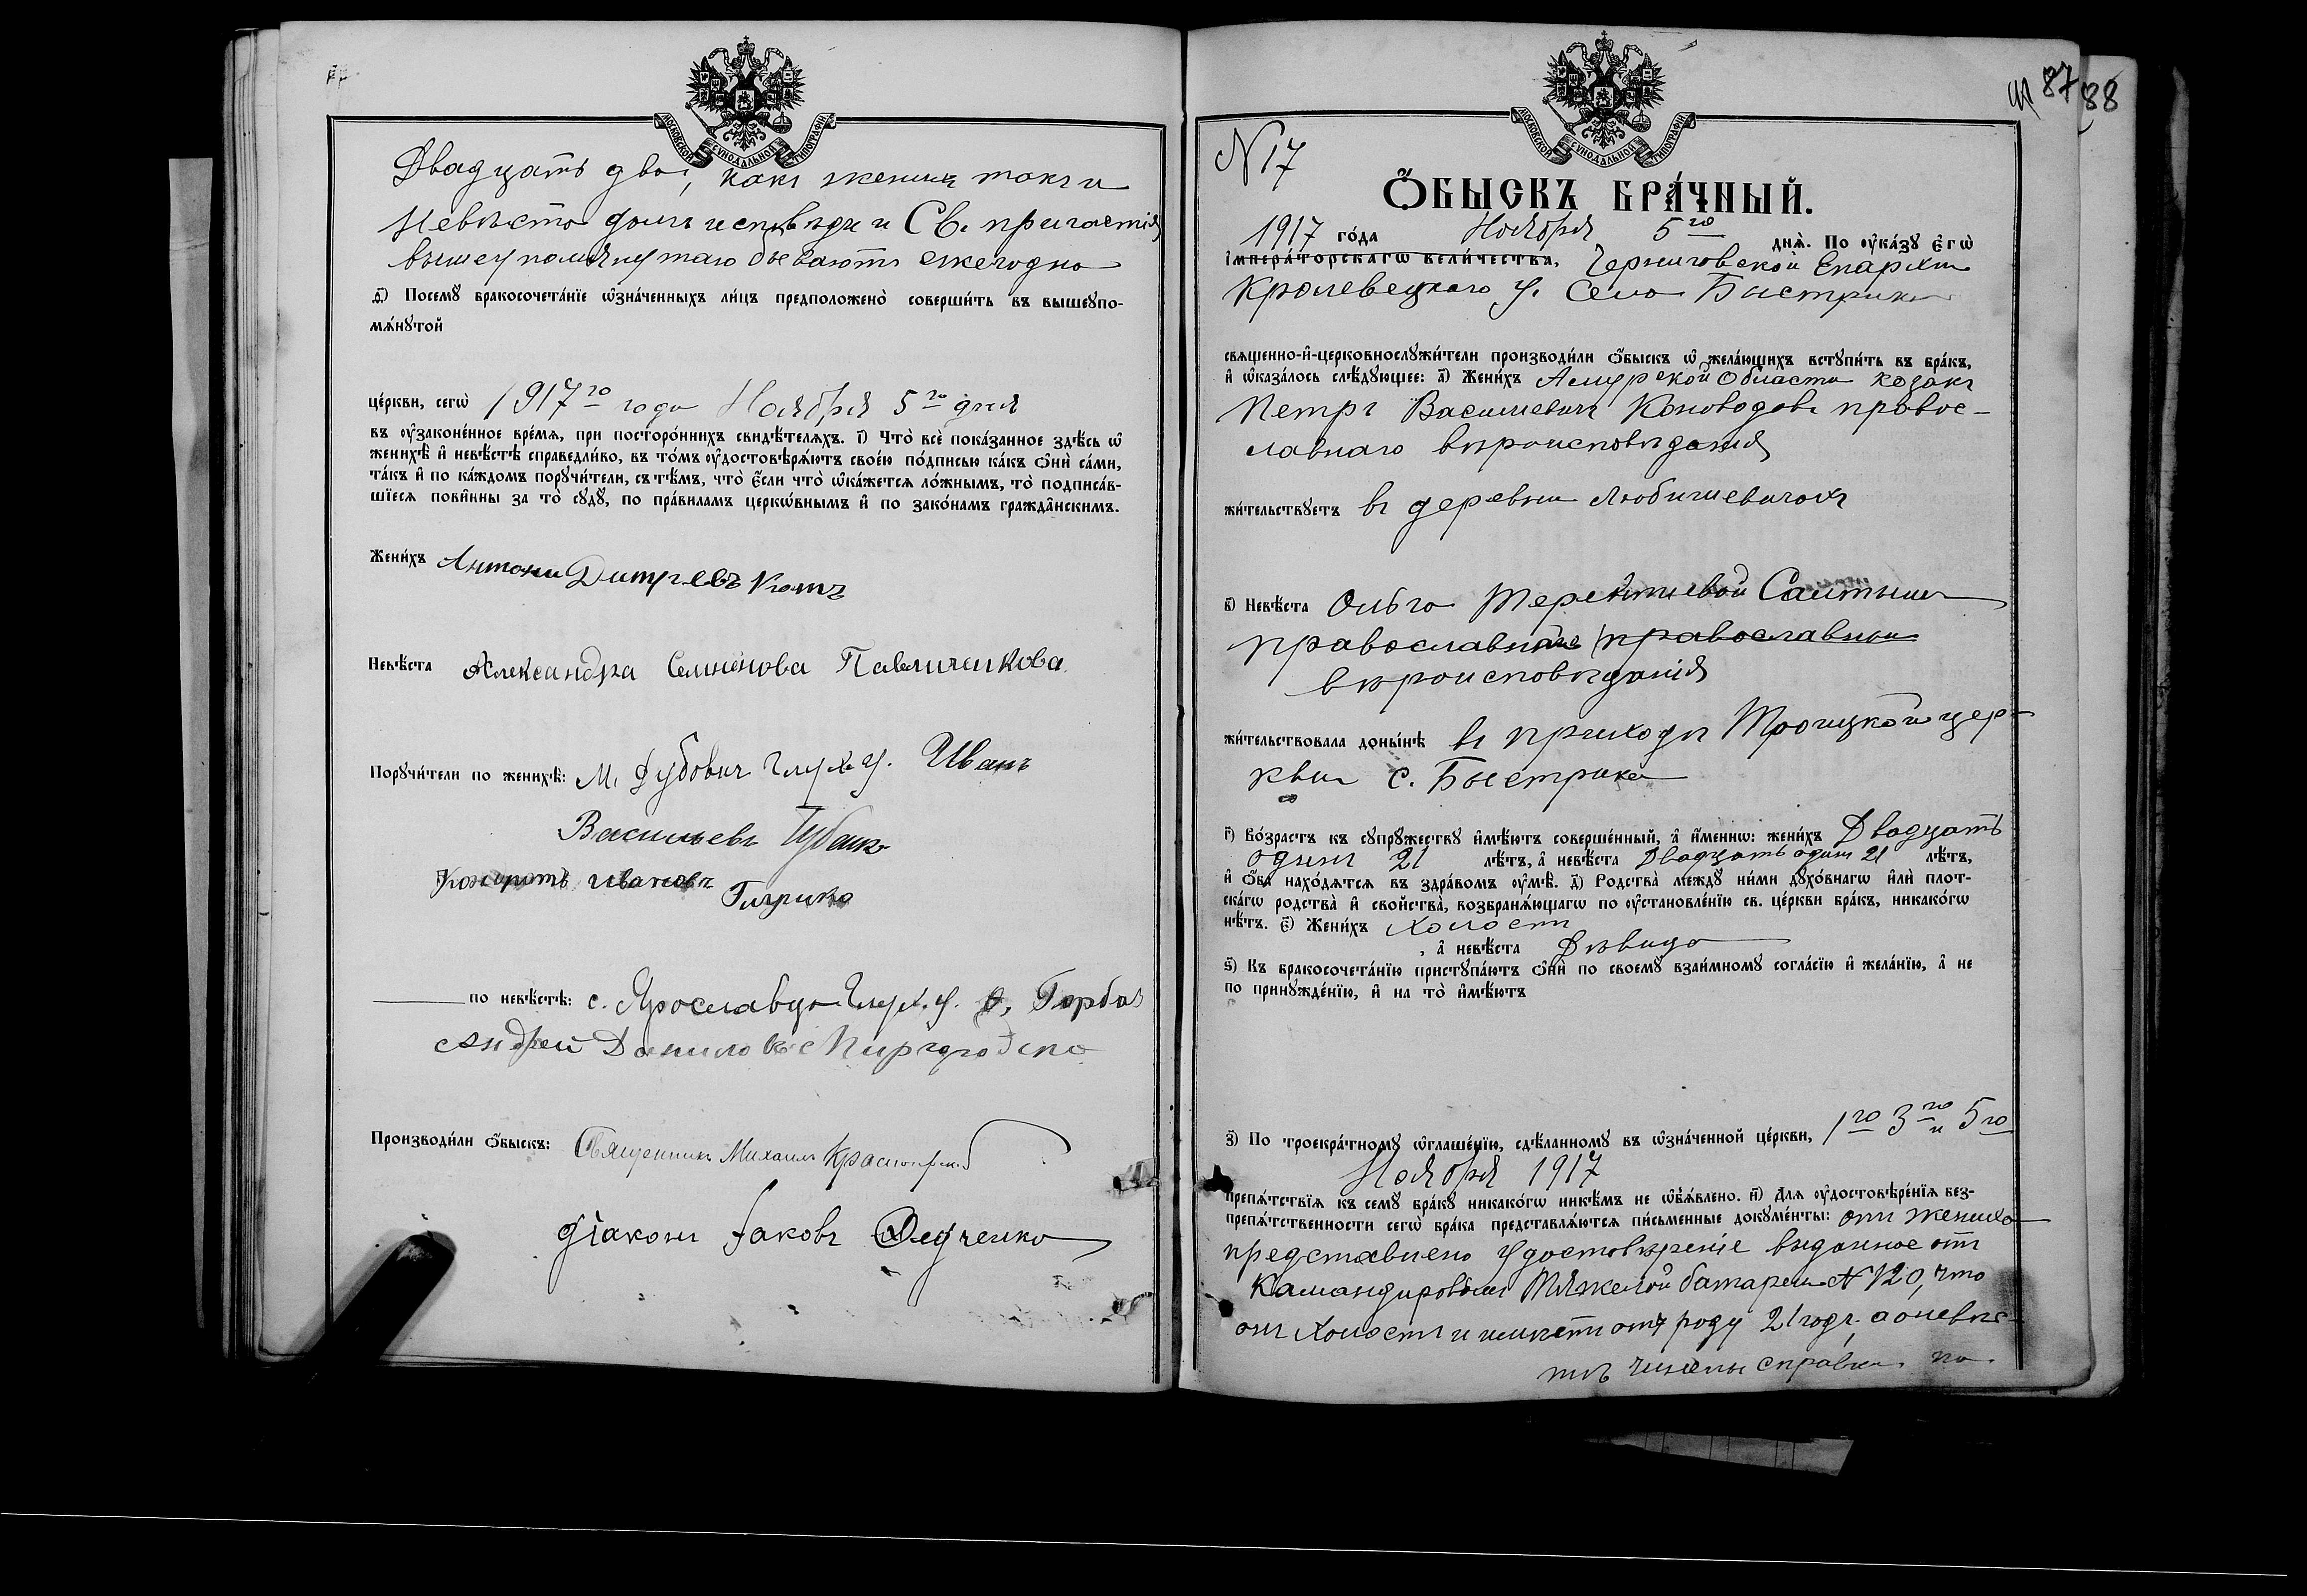 МОСКОВСКОЙ СѴНОДАЛЬНОЙ ТИПОГРАФІИ
Двадцать два, какъ женихъ такъ и
невѣста долгъ исповѣди и Св. причастія
вышеупомянутаго бываютъ ежегодно
ѳ҃) Посемꙋ бракосочета́нїе ѡ҆зна́ченныхъ ли́цъ предположено̀ соверши́ть въ вышеꙋпо-
мѧ́нꙋтой
це́ркви, сегѡ̀ 1917го года Ноября 5го дня
въ ᲂу҆зако́ненное вре́мѧ, при посторо́ннихъ свидѣ́телѧхъ. і҃) Что̀ всѐ пока́занное здѣ́сь ѡ҆
женихѣ̀ и҆ невѣ́стѣ справедли́во, въ то́мъ ᲂу҆достовѣрѧ́ютъ свое́ю по́дписью ка́къ ѻ҆нѝ са́ми,
та́къ и҆ по ка́ждомъ порꙋчи́тели, съ тѣ́мъ, что̀ є҆́сли что̀ ѡ҆ка́жетсѧ ло́жнымъ, то̀ подписа́в-
шїесѧ пови́нны за то̀ сꙋдꙋ̀, по пра́виламъ церкѡ́внымъ и҆ по зако́намъ гражда̑нскимъ.
Жени́хъ Антони Дитріевъ Котъ
Невѣ́ста Александра Семенова Павличенкова
Порꙋчи́тели по женихѣ̀: М. Дубович Глух. у. Иванъ
Васильевъ Губако
Кондратъ Ивановъ
по невѣ́стѣ: с. Ярославца Глух. у. Горбач
Андрей Данилов Миргородско
Производи́ли ѻ҆́быскъ: Священникъ Михаилъ
діаконъ Іаковъ
87 88
МОСКОВСКОЙ СѴНОДАЛЬНОЙ ТИПОГРАФІИ
N 17
Ѻ҆́БЫСКЪ БРА́ЧНЫЙ.
1917 го́да Ноября 5го днѧ̀. По ᲂу҆ка́зꙋ є҆гѡ̀
і҆мпера́торскагѡ вели́чества, Черниговской Епархіи
Кролевецкаго у. Села Быстрика
свѧщенно-и҆-церковнослꙋжи́тели производи́ли ѻ҆́быскъ ѡ҆ жела́ющихъ встꙋпи́ть въ бра́къ,
и҆ ѡ҆каза́лось слѣ́дꙋющее: а҃) Жени́хъ Амурской Области козакъ
Петръ Василиевичъ Коноводовъ правос-
лавнаго вѣроисповѣдания
жи́тельствꙋетъ въ деревни Любичшевичохъ
в҃) Невѣ́ста Ольга Терентиевой
православной православной
вѣроисповѣданія
жи́тельствовала доны́нѣ въ приходѣ Троицкой цер-
кви с. Быстрика
г҃) Во́зрастъ къ сꙋпрꙋ́жествꙋ и҆мѣ́ютъ соверше́нный, а҆ и҆́меннѡ: жени́хъ Двадцать
одинъ 21 лѣ́тъ, а҆ невѣ́ста Двадцать один 21 лѣ́тъ,
и҆ ѻ҆́ба нахо́дѧтсѧ въ здра́вомъ ᲂу҆мѣ̀. д҃) Родства̀ междꙋ̀ ни́ми дꙋхо́внагѡ и҆лѝ плот-
ска́гѡ родства̀ и҆ свойства̀, возбранѧ́ющагѡ по ᲂу҆становле́нїю св. це́ркви бра́къ, никако́гѡ
нѣ́тъ. є҃) Жени́хъ Холостъ
, а҆ невѣ́ста Дѣвица
ѕ҃) Къ бракосочета́нїю пристꙋпа́ютъ ѻ҆нѝ по своемꙋ̀ взаи́мномꙋ согла́сїю и҆ жела́нїю, а҆ не
по принꙋжде́нїю, и҆ на то̀ и҆мѣ́ютъ
з҃) По троекра́тномꙋ ѡ҆глаше́нїю, сдѣ́ланномꙋ въ ѡ҆зна́ченной це́ркви, 1го 3го и 5го
Ноября 1917
препѧ́тствїѧ къ семꙋ̀ бра́кꙋ никако́гѡ никѣ́мъ не ѡ҆б̾ѧ́влено. и҃) Длѧ ᲂу҆достовѣре́нїѧ без-
препѧ́тственности сегѡ̀ бра́ка представлѧ́ютсѧ пи́сьменные докꙋме́нты: отъ жениха
представлено удостовѣреніе выданное отъ
Камандировомъ Тяжелой батареи N 120, что
онъ холостъ и имѣетъ отъ роду 21 годъ, а о невѣс-
тѣ чинены справки по